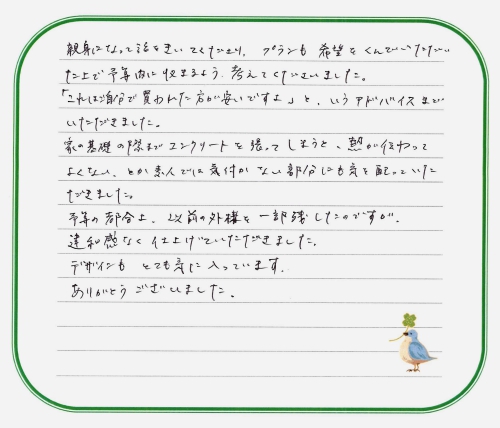 親身になって話をきいてくださり、プランも希望をくんでいただい
た上で予算内に収まるよう考えてくださいました。
「これはご自分で買われた方が安いですよ」と、いうアドバイスまで
いただきました。
家の基礎の際までコンクリートを張ってしまうと、熱が伝わって
よくない、とか素人では気付かない部分にも気を配っていた
だきました。
予算の都合上、以前の外構を一部残したのですが、
違和感なく仕上げていただきました。
デザインもとても気に入っています。
ありがとうございました。